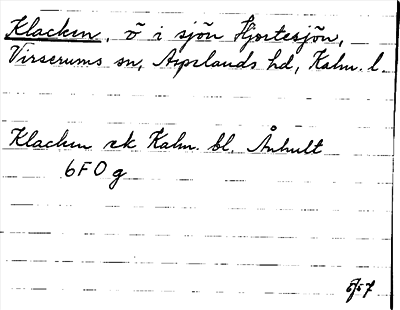 Klacken, ö i sjön Hjortesjön,
Virserums sn, Aspelands hd, Kalm. l.
Klacken ek Kalm. bl. Ånhult
6F0g
5/57